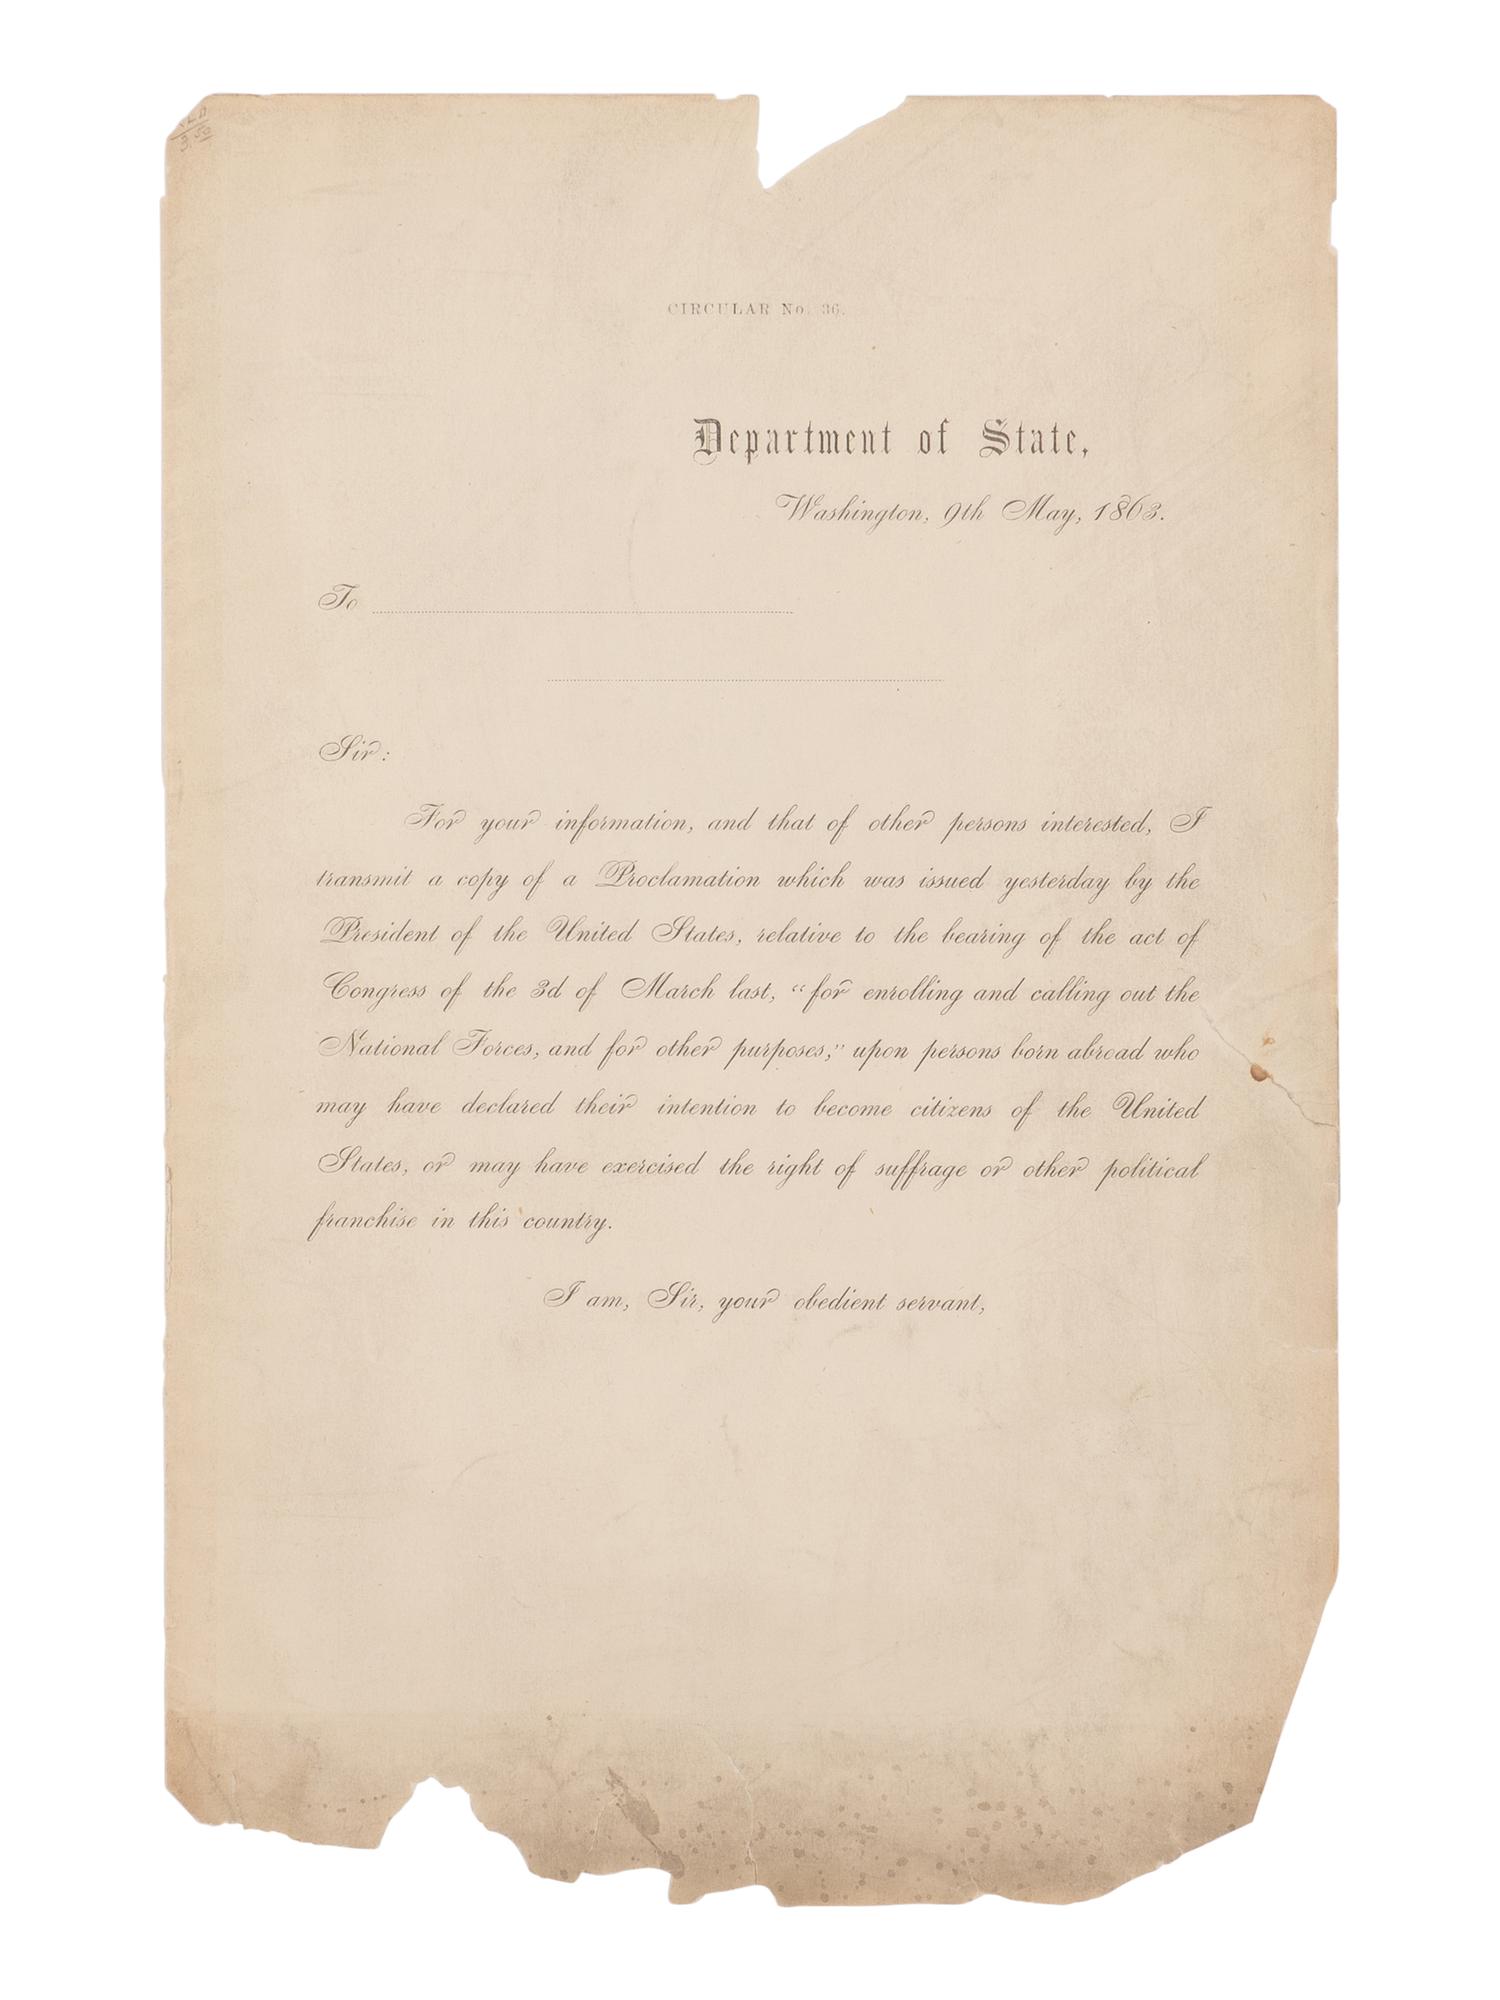 CIRCULAR No. 36.
Department of State,
Washington, 9th May, 1863.
To
Sir:
For your information, and that of other persons interested, I
transmit a copy of a Proclamation which was issued yesterday by the
President of the United States, relative to the bearing of the act of
Congress of the 3d of March last, "for enrolling and calling out the
National Forces, and for other purposes," upon persons born abroad who
may have declared their intention to become citizens of the United
States, or may have exercised the right of suffrage or other political
franchise in this country.
I am, Sir, your obedient servant,